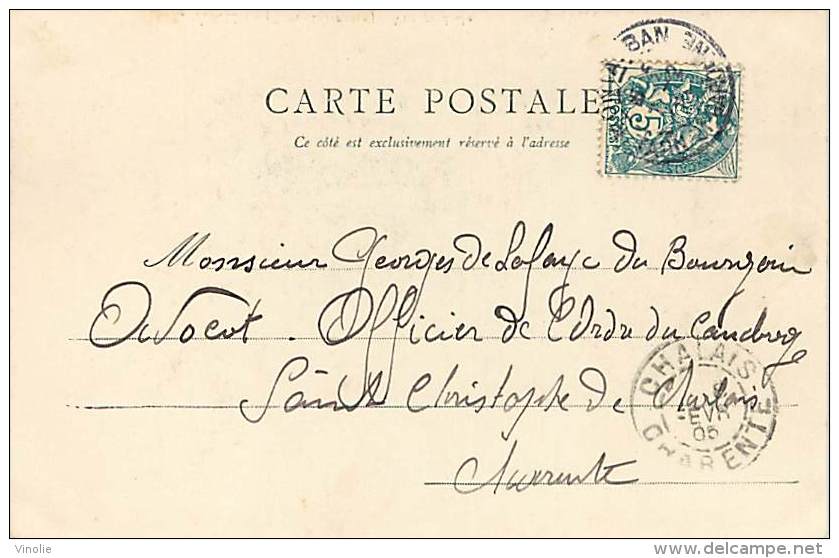 CARTE POSTALE
Ce côté est exclusivement réservé à l'adresse
BAN
5
Monsieur Georges de Lafaye du Bourgoin
Avocat. Officier de l'Ordre du Cambodge
Saint Christophe de Chalais
Charente
CHALAIS
05
CHARENTE
Vinolie
delcampe.net